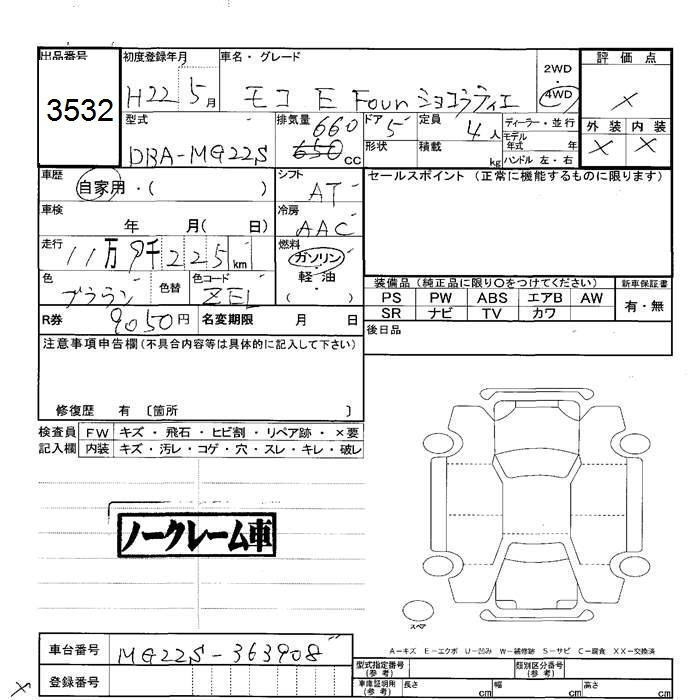 出品番号
3532
初度登録年月
H22 5月
車名・グレード
モコ E Four ショコラティエ
2WD
4WD
評価点
×
外装 内装
× ×
型式
DBA-MG22S
排気量
660
650 cc
ドア 5
形状
定員 4人
積載 kg
ディーラー・並行
モデル年式 年
ハンドル 左・右
車歴
自家用・( )
シフト
AT
セールスポイント (正常に機能するものに限ります)
車検
年 月( 日)
冷房
AAC
走行
11万9千225km
燃料
ガソリン
軽・油
( )
色
ブラウン
色替
色コード
ZEL
装備品 (純正品に限り〇をつけてください)
新車保証書
PS PW ABS エアB AW
有・無
SR ナビ TV カワ
R券 9050円
名変期限 月 日
後日品
注意事項申告欄(不具合内容等は具体的に記入して下さい)
修復歴 有 〔箇所 〕
検査員
記入欄
FW キズ・飛石・ヒビ割・リペア跡・×要
内装 キズ・汚レ・コゲ・穴・スレ・キレ・破レ
ノークレーム車
スペア
A-キズ E-エクボ U-凹み W-補修跡 S-サビ C-腐食 XX-交換済
車台番号
MG22S-363908
登録番号
×
型式指定番号
(参考)
類別区分番号
(参考)
車庫証明用
(参考)
長さ cm
幅 cm
高さ cm